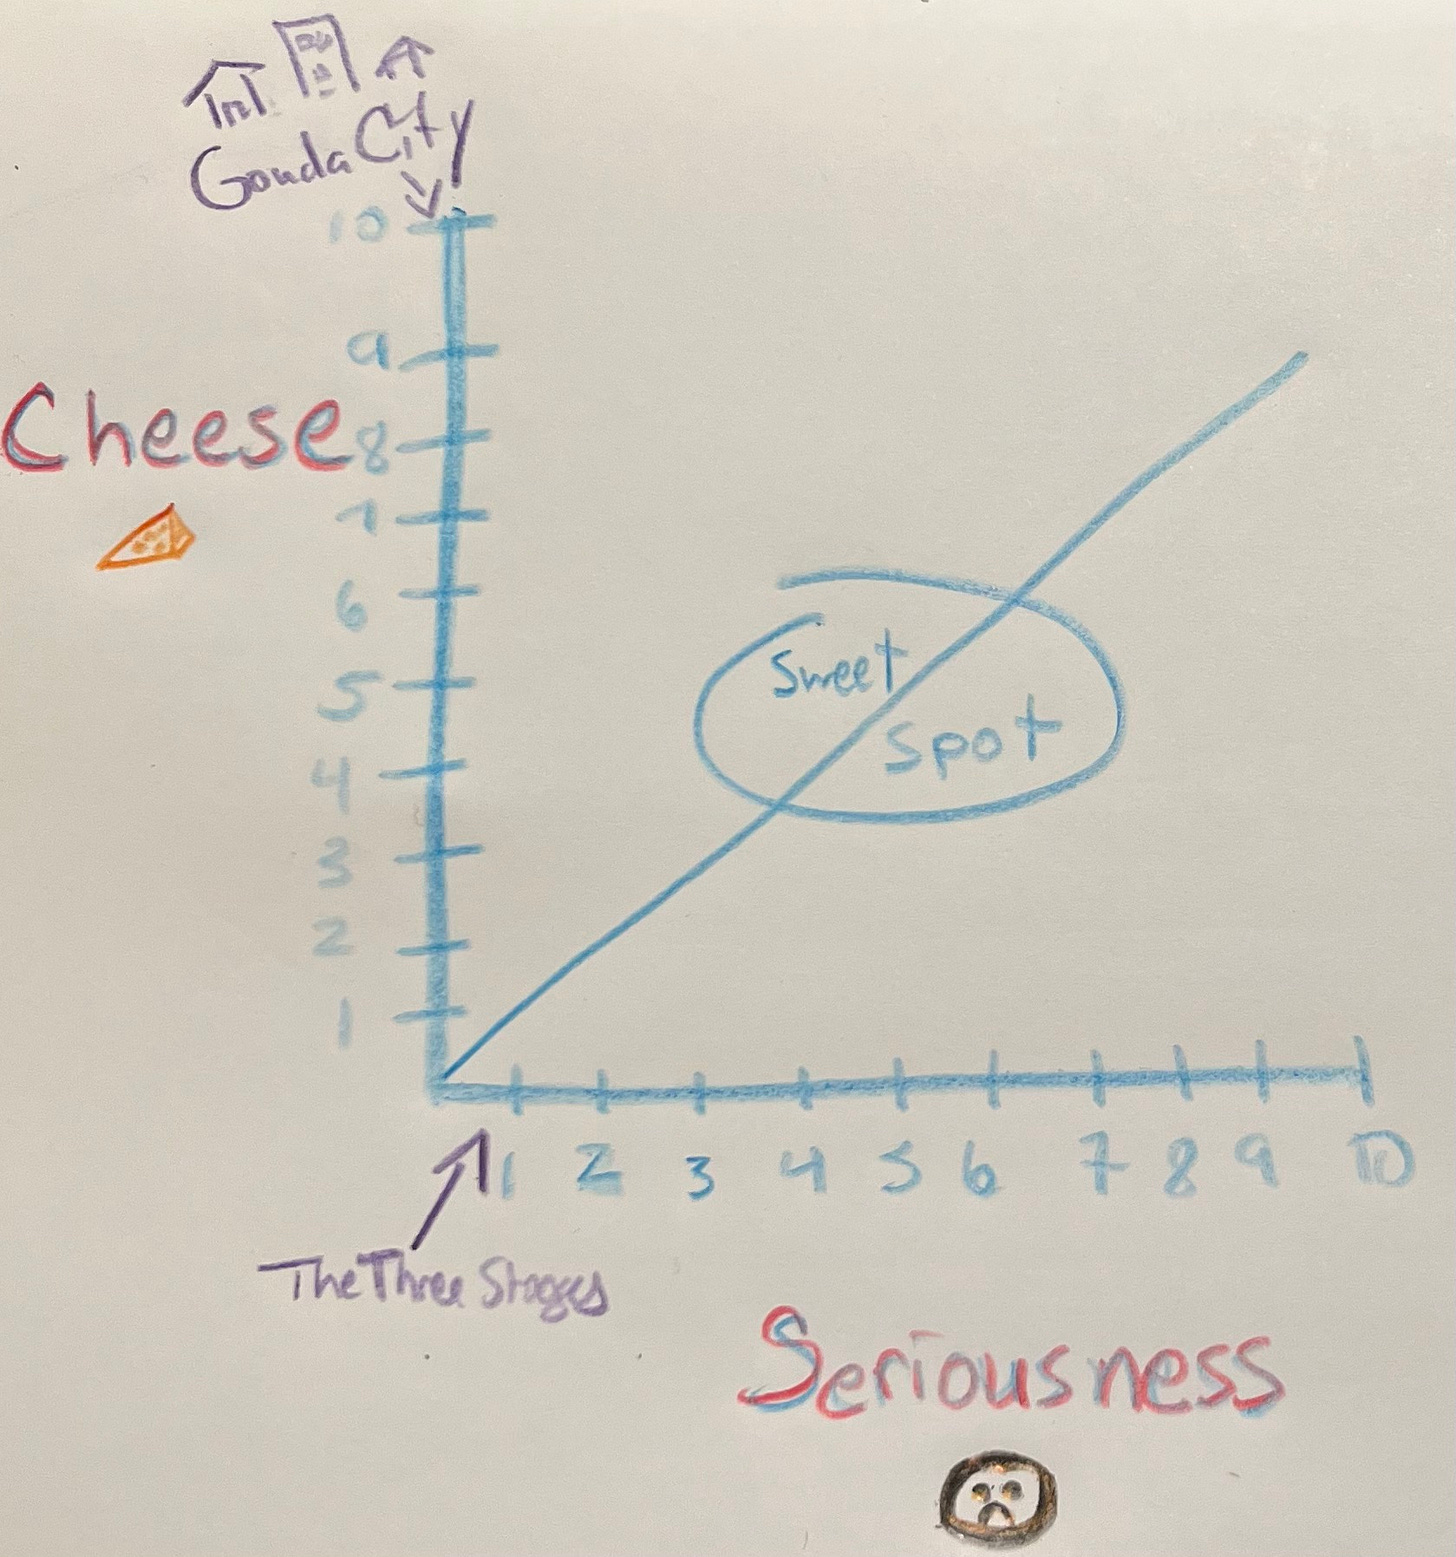 Gouda City
10
9
Cheese
8
7
6
Sweet
5
Spot
4
3
2
1
1 2 3 4 5 6 7 8 9 10
The Three Stages
Seriousness